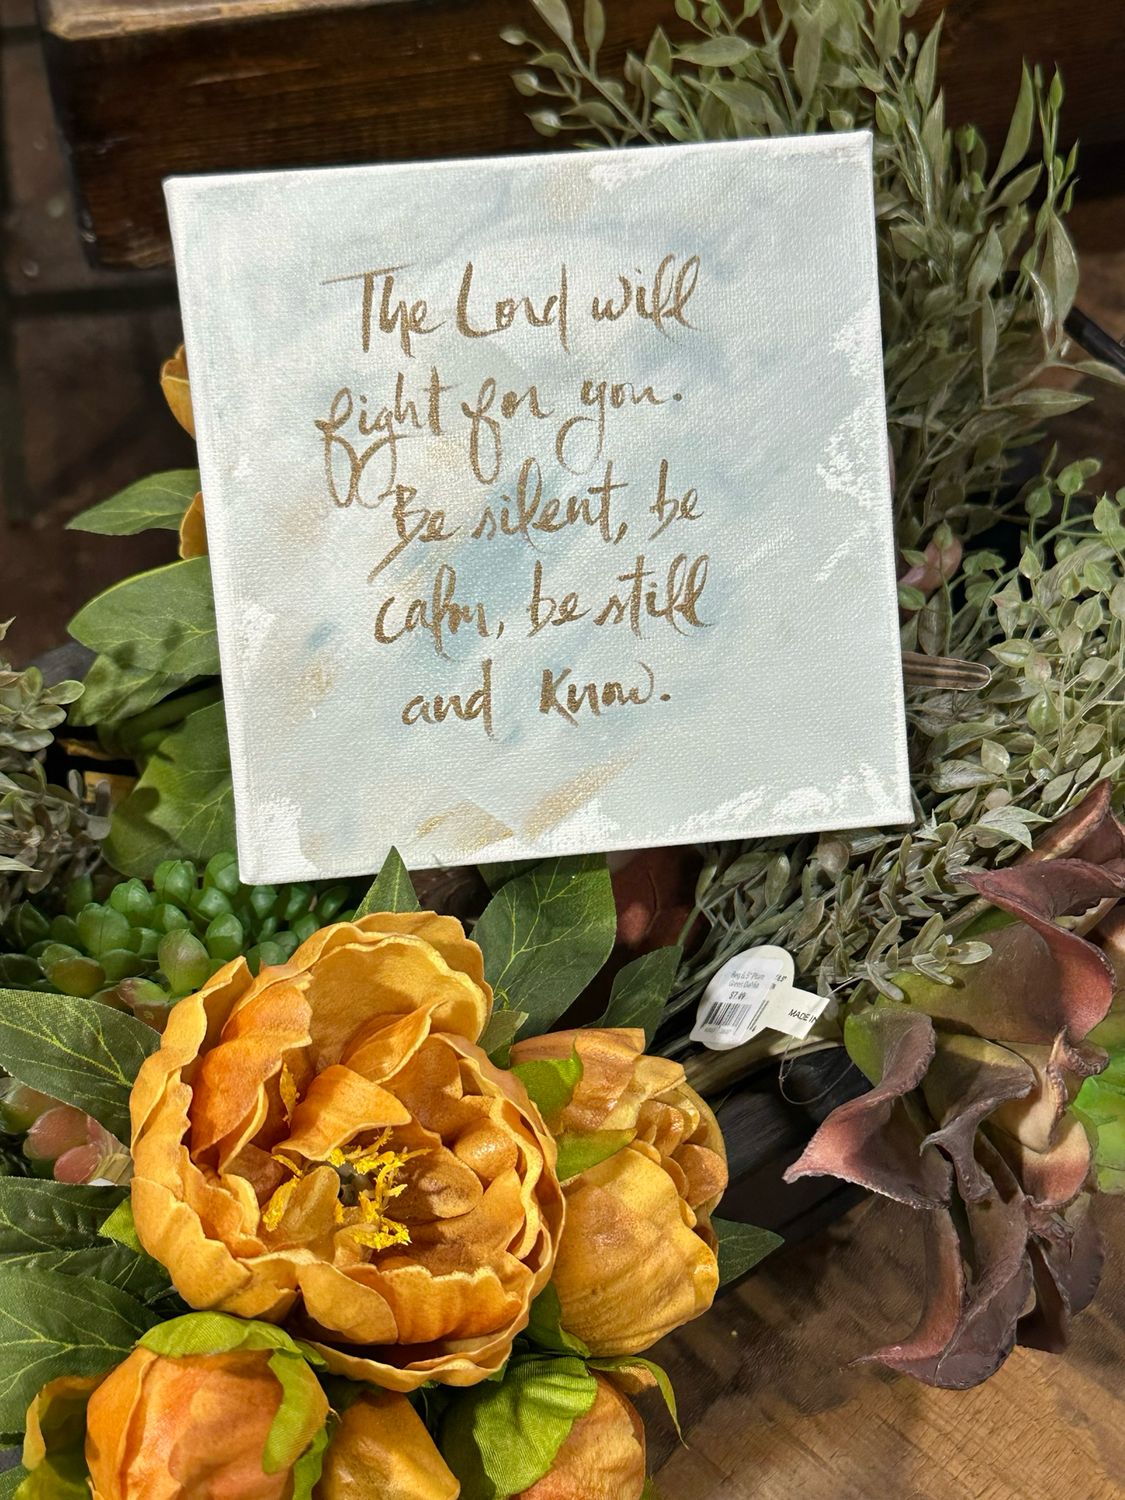 The Lord will
fight for you.
Be silent, be
calm, be still
and know.
$7.99
MADE IN